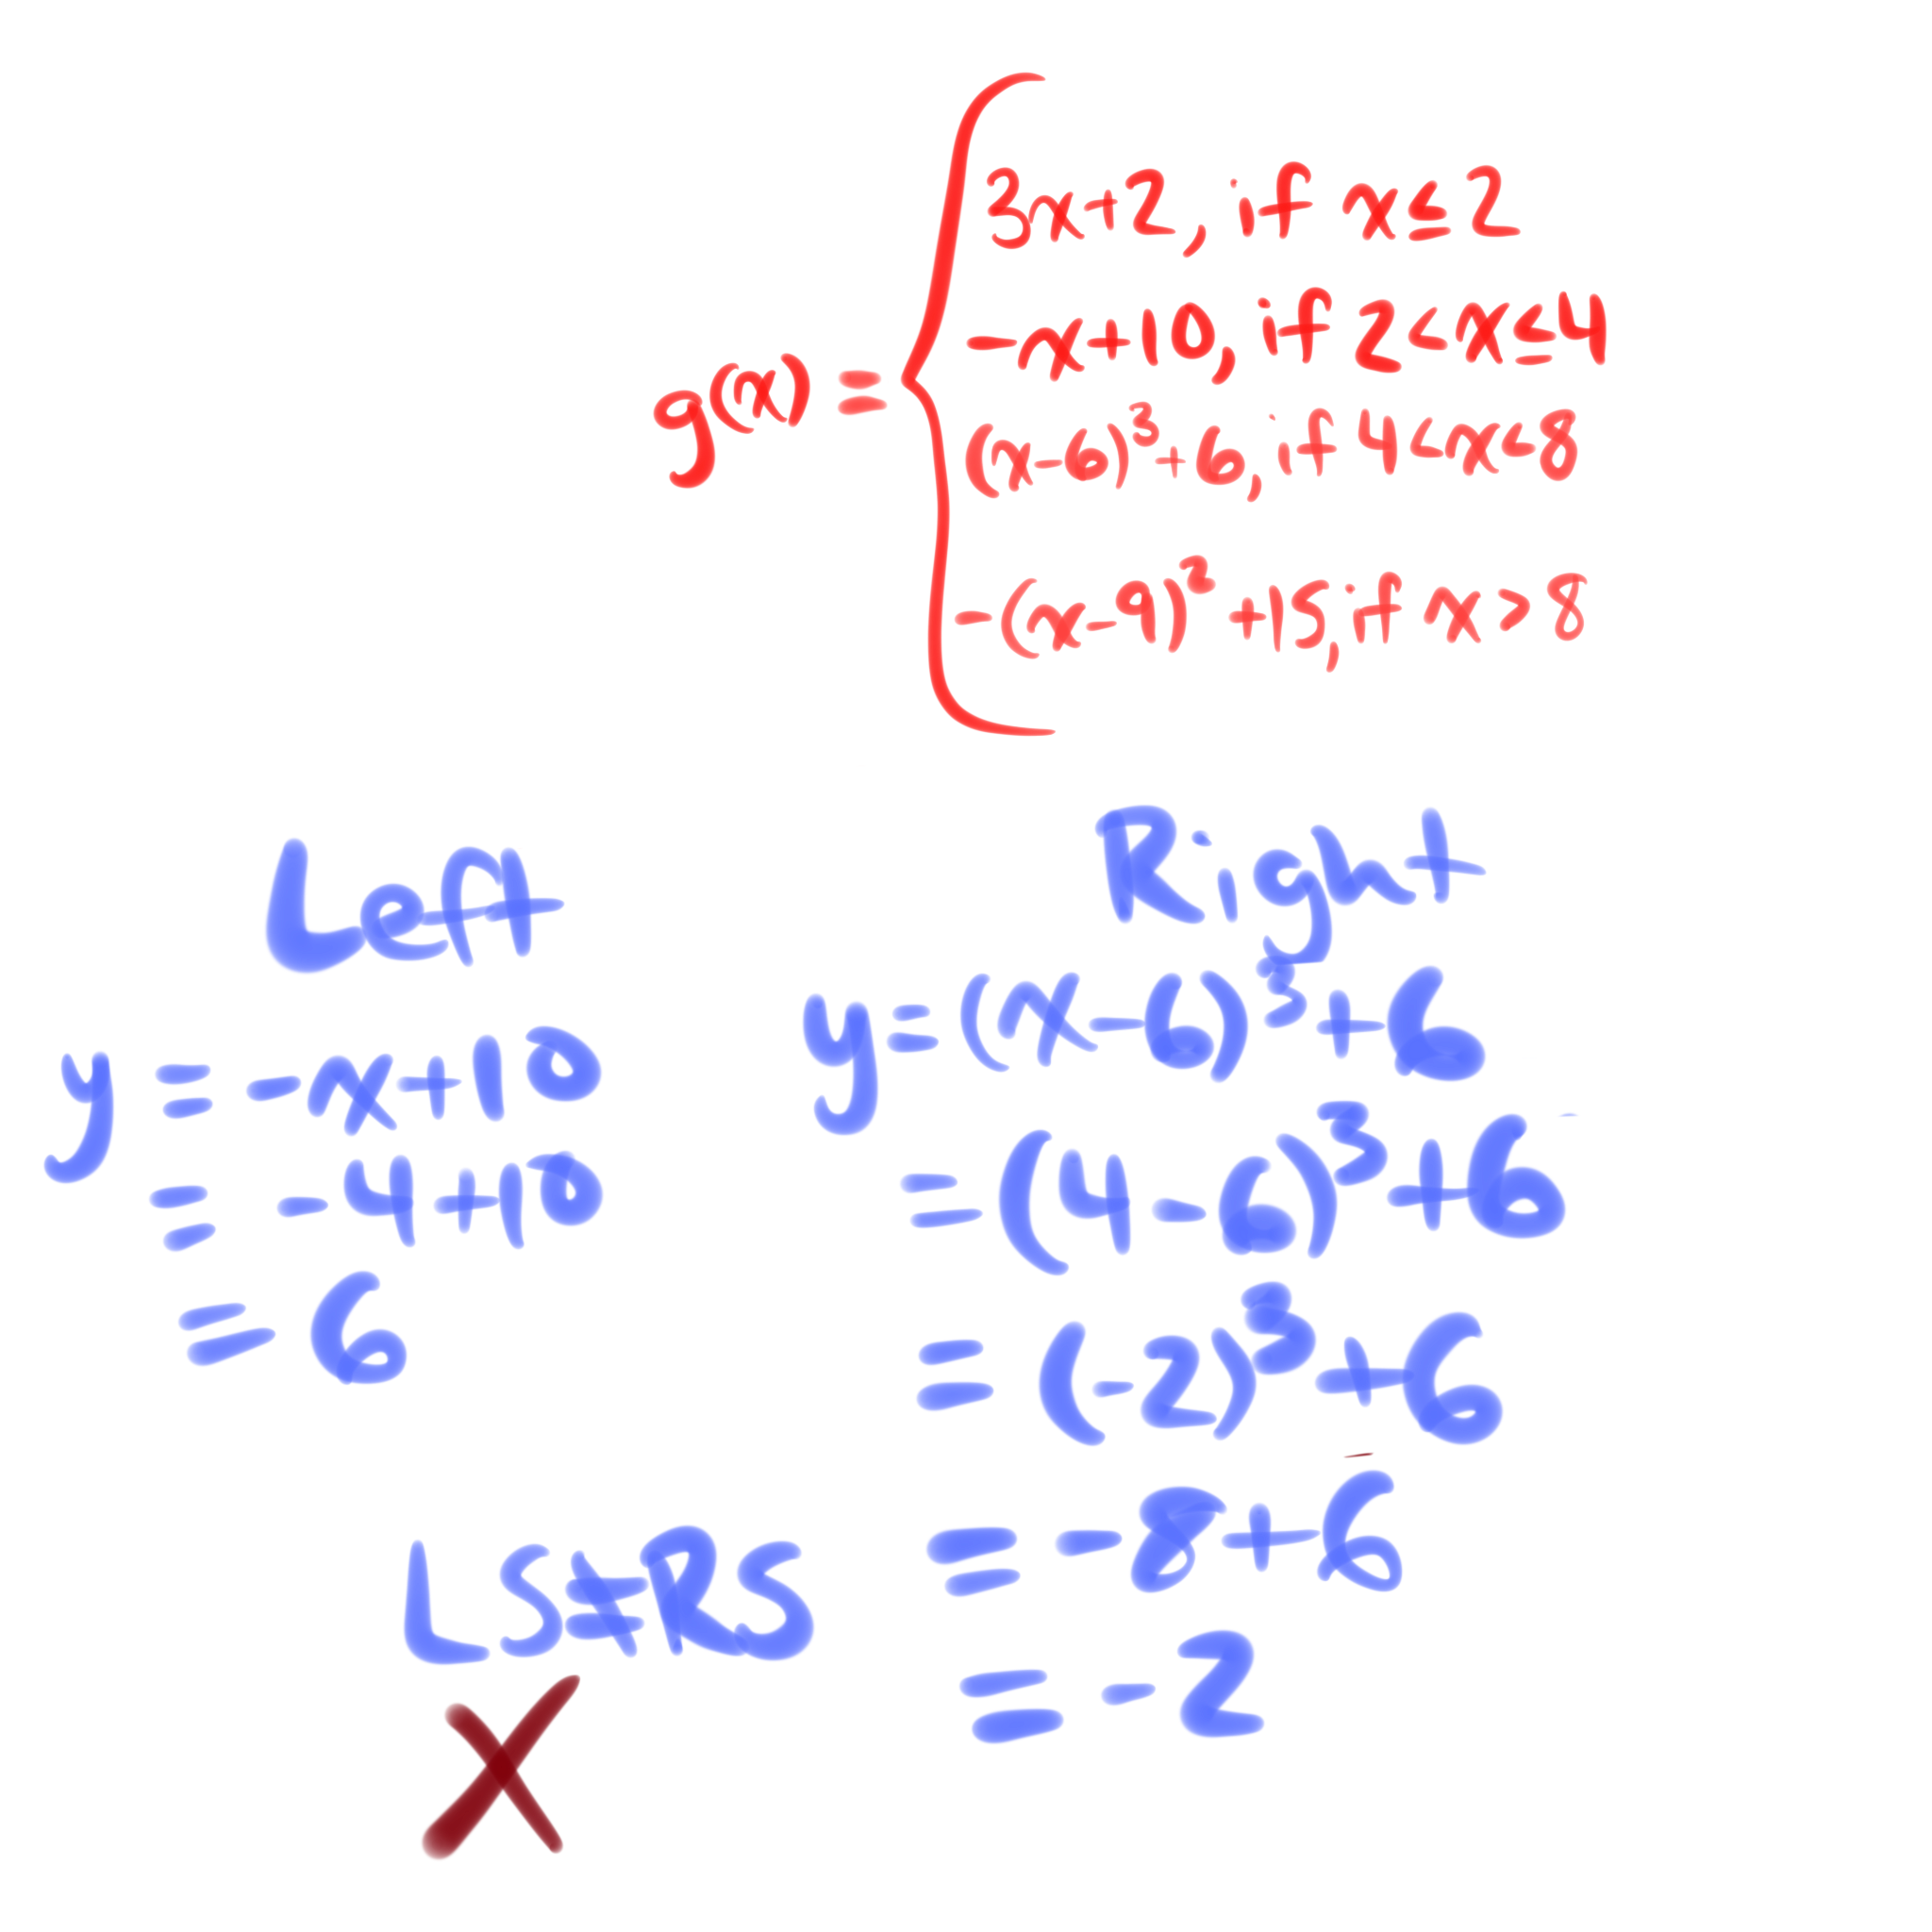 g(x) =
3x+2, if x≤2
-x+10, if 2<x≤4
(x-6)³+6, if 4<x<8
-(x-9)²+15, if x>8
Left
y = -x+10
= -4+10
= 6
Right
y = (x-6)³+6
= (4-6)³+6
= (-2)³+6
= -8+6
= -2
LS≠RS
X